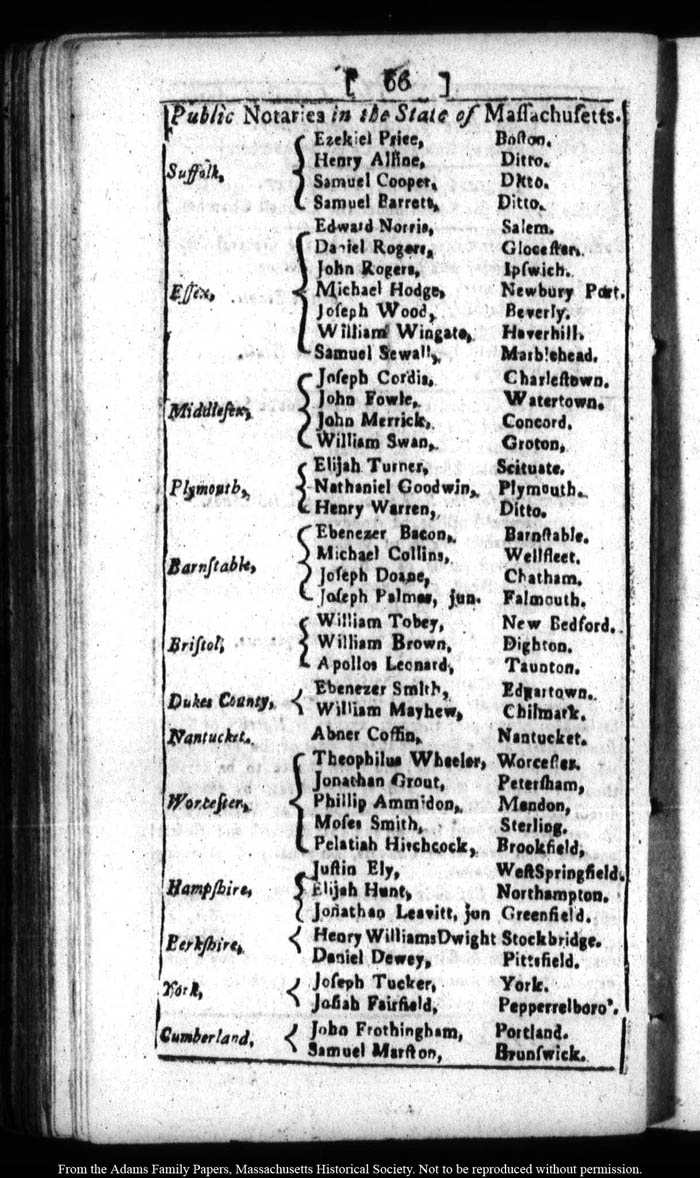 [ 66 ]
Public Notaries in the State of Maſſachuſetts.
Suffolk, { Ezekiel Price, Boſton.
Henry Alline, Ditto.
Samuel Cooper, Ditto.
Samuel Barrett, Ditto.
Eſſex, { Edward Norris, Salem.
Daniel Rogers, Gloceſter.
John Rogers, Ipſwich.
Michael Hodge, Newbury Port.
Joſeph Wood, Beverly.
William Wingate, Haverhill.
Samuel Sewall, Marblehead.
Middleſex, { Joſeph Cordis, Charleſtown.
John Fowle, Watertown.
John Merrick, Concord.
William Swan, Groton,
Plymouth, { Elijah Turner, Scituate.
Nathaniel Goodwin, Plymouth.
Henry Warren, Ditto.
Barnſtable, { Ebenezer Bacon, Barnſtable.
Michael Collins, Wellfleet.
Joſeph Doane, Chatham.
Joſeph Palmer, jun. Falmouth.
Briſtol, { William Tobey, New Bedford.
William Brown, Dighton.
Apollos Leonard, Taunton.
Dukes County, { Ebenezer Smith, Edgartown.
William Mayhew, Chilmark.
Nantucket. Abner Coffin, Nantucket.
Worceſter, { Theophilus Wheeler, Worceſter.
Jonathan Grout, Peterſham,
Phillip Ammidon, Mendon,
Moſes Smith, Sterling.
Pelatiah Hitchcock, Brookfield,
Hampſhire, { Juſtin Ely, WeſtSpringfield.
Elijah Hunt, Northampton.
Jonathan Leavitt, jun Greenfield.
Berkſhire, { Henry WilliamsDwight Stockbridge.
Daniel Dewey, Pittsfield.
York, { Joſeph Tucker, York.
Joſiah Fairfield, Pepperrelboro'.
Cumberland, { John Frothingham, Portland.
Samuel Marſton, Brunſwick.
From the Adams Family Papers, Massachusetts Historical Society. Not to be reproduced without permission.